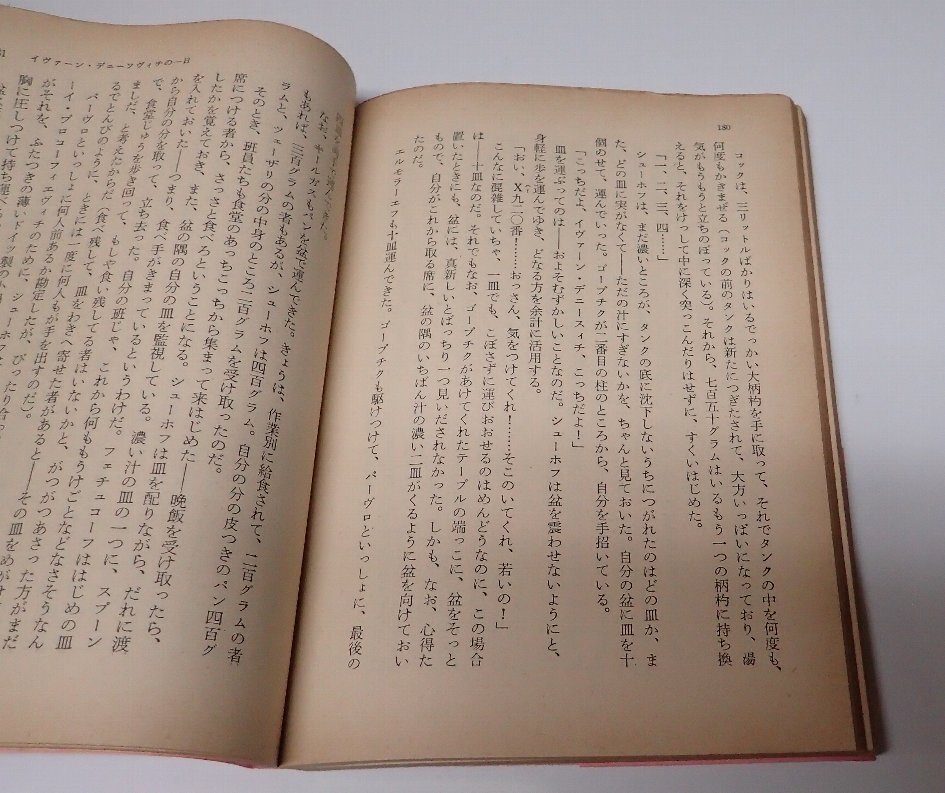 180
コックは、三リットルばかりはいるでっかい大柄杓を手に取って、それでタンクの中を何度も、
何度もかきまぜる（コックの前のタンクは新たにつぎたされて、大方いっぱいになっており、湯
気がもうもうと立ちのぼっている）。それから、七百五十グラムはいるもう一つの柄杓に持ち換
えると、それをけっして中に深く突っこんだりはせずに、すくいはじめた。
「一、二、三、四……」
シューホフは、まだ濃いところが、タンクの底に沈下しないうちにつがれたのはどの皿か、ま
た、どの皿に実がなくて――ただの汁にすぎないかを、ちゃんと見ておいた。自分の盆に皿を十
個のせて、運んでいった。ゴープチクが二番目の柱のところから、自分を手招いている。
「こっちだよ、イヴァーン・デニースィチ、こっちだよ！」
皿を運ぶってのは――およそむずかしいことなのだ。シューホフは盆を震わせないようにと、
身軽に歩を運んでゆき、どなる方を余計に活用する。
「おい、Х九二〇番！……おっさん、気をつけてくれ！……そこのいてくれ、若いの！」
こんなに混雑していちゃ、一皿でも、こぼさずに運びおおせるのはめんどうなのに、この場合
は――十皿なのだ。それでもなお、ゴープチクがあけてくれたテーブルの端っこに、盆をそっと
置いたときにも、盆には、真新しいとばっちり一つ見いだされなかった。しかも、なお、心得た
もので、自分がこれから取る席に、盆の隅のいちばん汁の濃い二皿がくるように盆を向けておい
たのだ。
エルモラーエフも十皿運んできた。ゴープチクも駆けつけて、パーヴロといっしょに、最後の
イヴァーン・デニーソヴィチの一日
なお、キールガスもパンを盆で運んできた。きょうは、作業別に給食されて、二百グラムの者
もあれば、三百グラムの者もあるが、シューホフは四百グラム。自分の分の皮つきのパン四百グ
ラムと、ツェーザリの分の中身のところ二百グラムを受け取ったのだ。
そのとき、班員たちも食堂のあっちこっちから集まって来はじめた――晩飯を受け取ったら、
席につける者から、さっさと食べろということになる。シューホフは皿を配りながら、だれに渡
したかを覚えておき、また、盆の隅の自分の皿を監視している。濃い汁の皿の一つに、スプーン
を入れておいた――つまり、食べ手がきまっているというわけだ。フェチュコーフははじめの皿
から自分の分を取って、立ち去った。自分の班じゃ、これから何ももうけごとなどなさそうなん
で、食堂じゅうを歩き回って、もしや食い残してる者はいないかと、がつがつあさった方がまだ
ましだ、と考えたからだ（食べ残して、皿をわきへ寄せた者があると――その皿をめがけ
るでとんびのように、ときには一度に何人もが手を出すのだ）。
パーヴロといっしょに何人前あるか勘定したが、ぴったり合っ
ーイ・プロコーフィエヴィチのために、シューホフは
がそれを、ふたつきの薄いドイツ製の
胸に圧しつけて持ち運べ